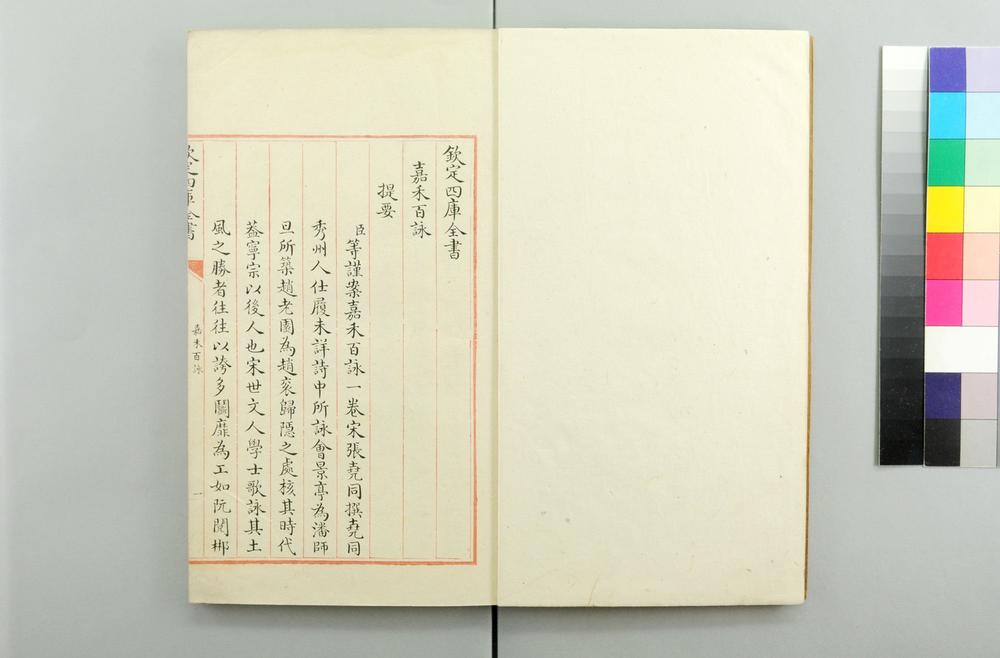 欽定四庫全書
嘉禾百詠
提要
臣等謹案嘉禾百詠一卷宋張堯同撰堯同
秀州人仕履未詳詩中所詠會景亭為潘師
旦所築趙老園為趙衮歸隱之處核其時代
葢寧宗以後人也宋世文人學士歌詠其土
風之勝者往往以誇多鬭靡為工如阮閱郴
欽定四庫全書
嘉禾百詠
一